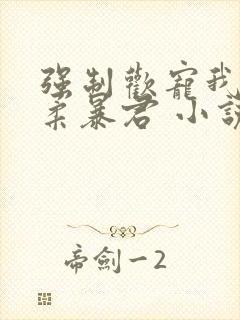 强制歡寵我
柔暴君 小說
帝劍一2